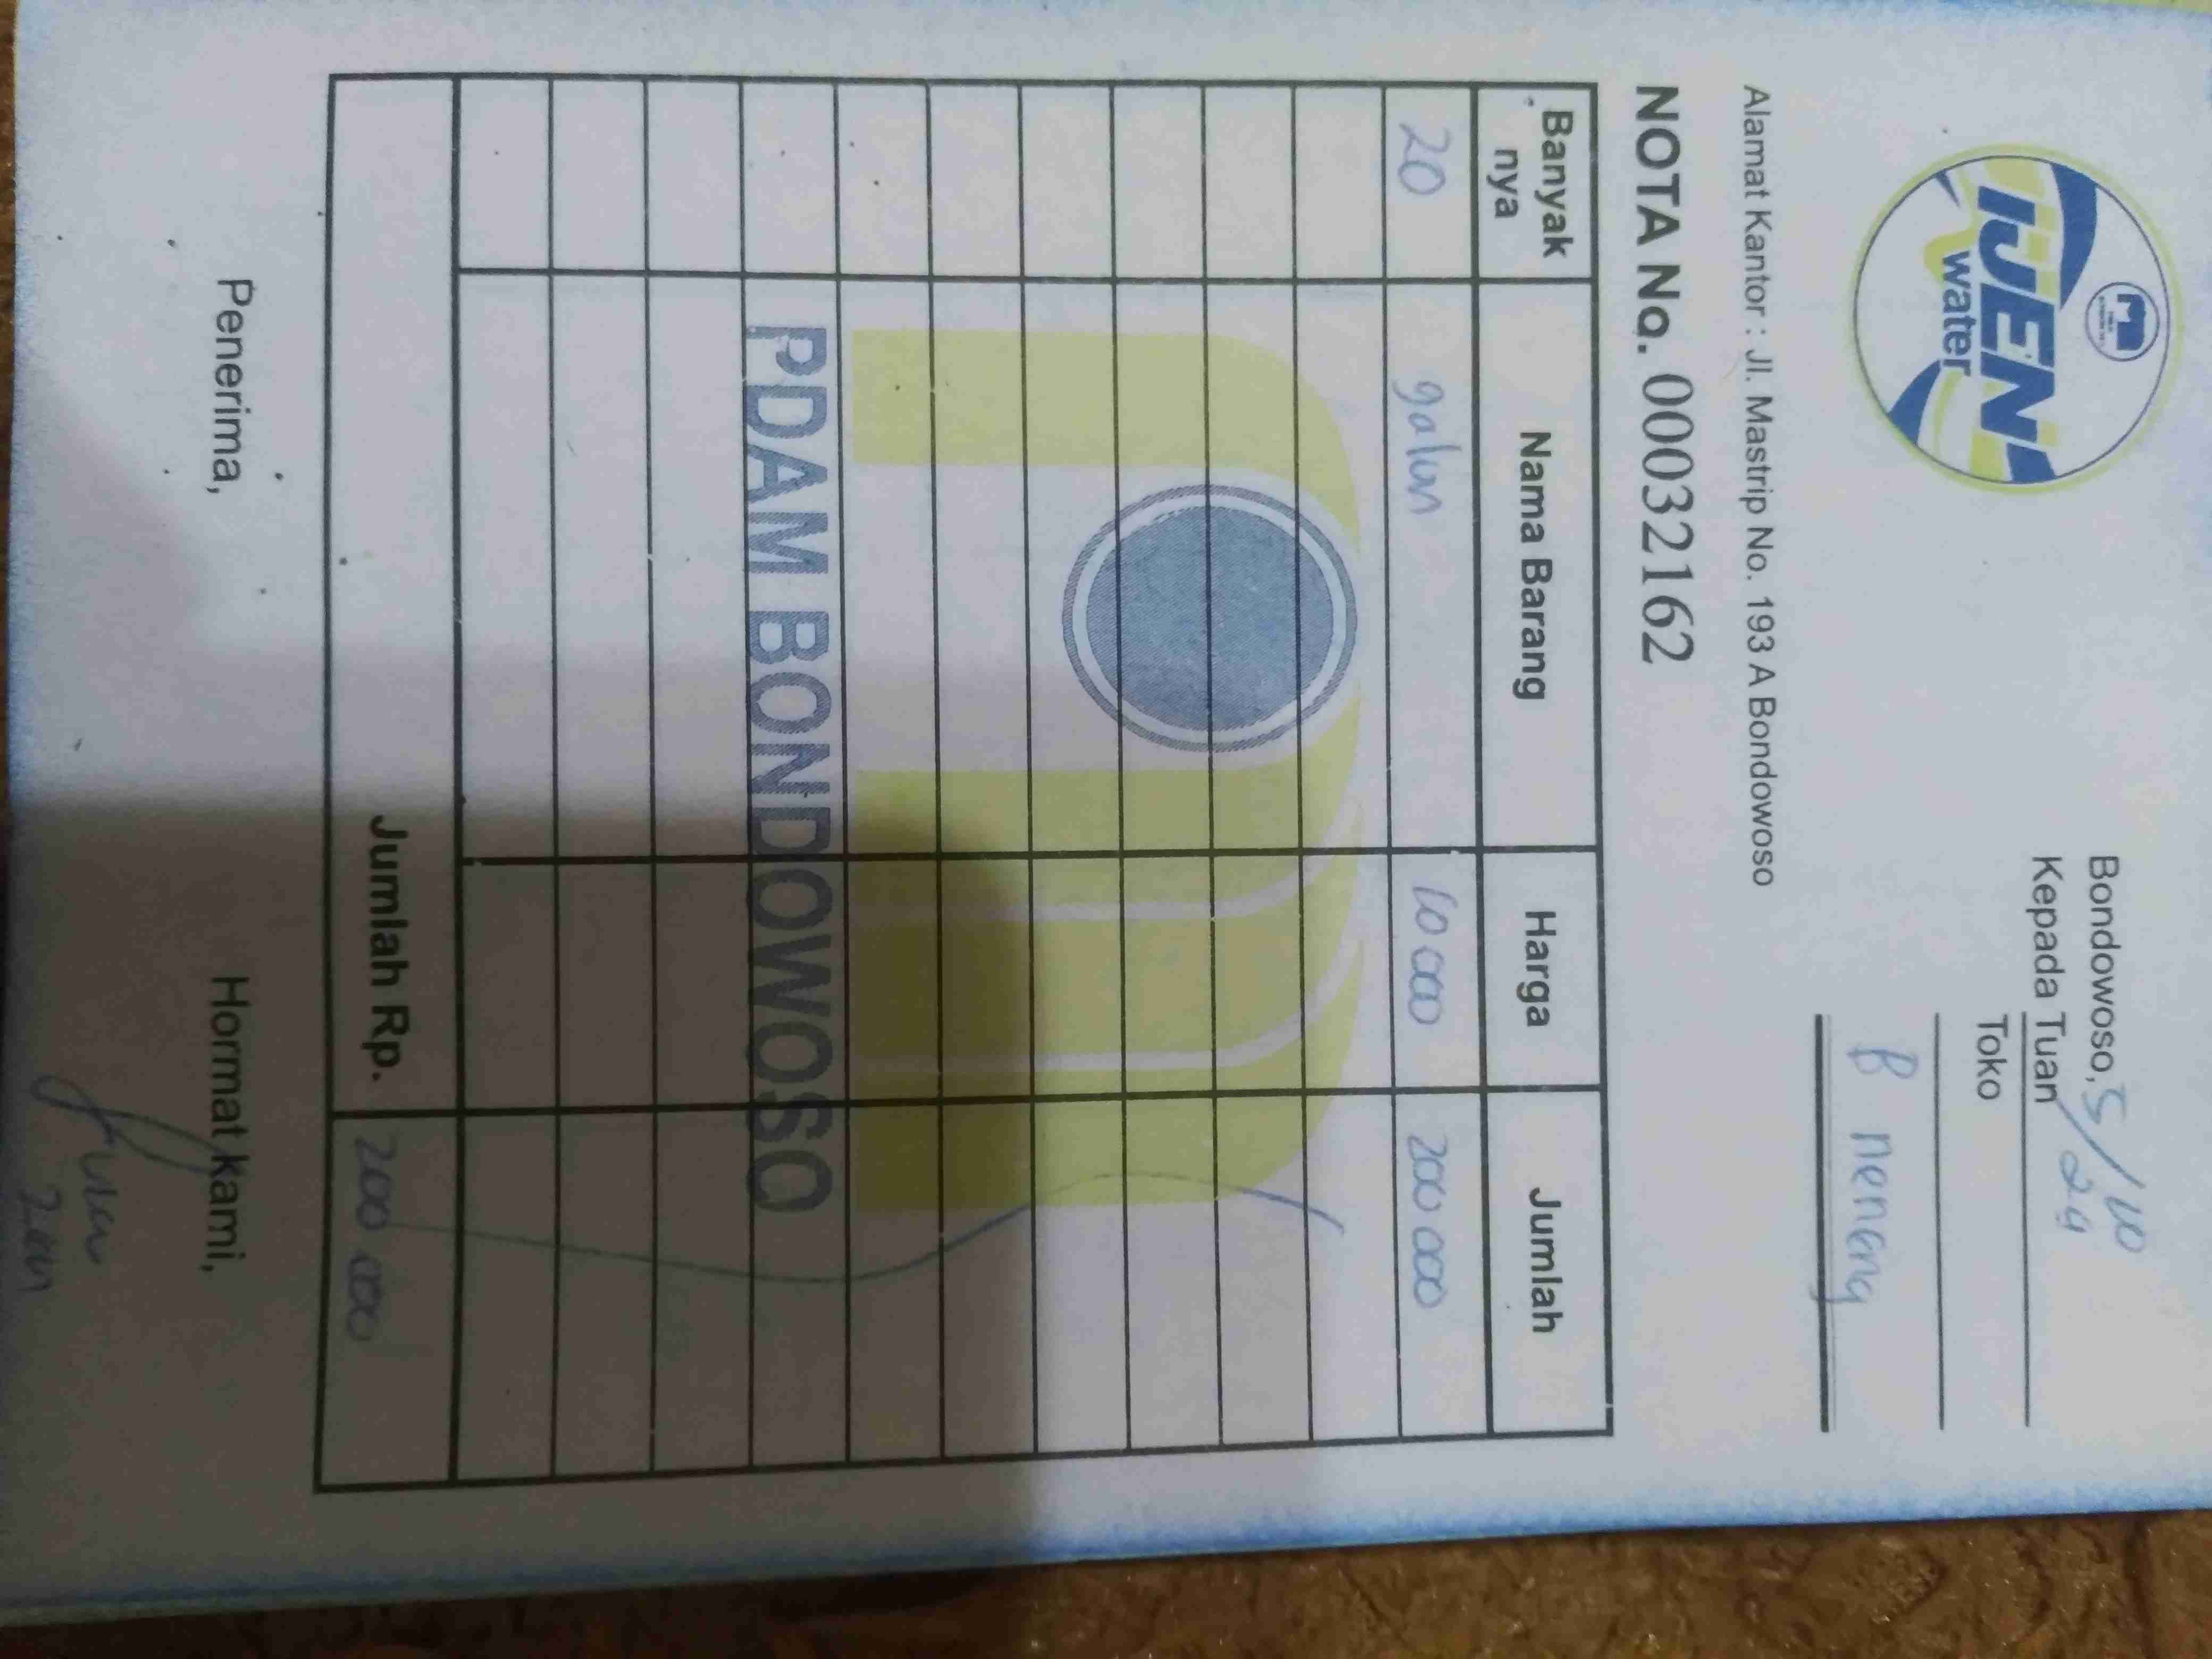 IJEN
water
Bondowoso, 5/10
24
Kepada Tuan
Toko
B neneng
Alamat Kantor : Jl. Mastrip No. 193 A Bondowoso
NOTA No. 00032162
Banyak nya Nama Barang Harga Jumlah
20 galun 10 000 200 000
PDAM BONDOWOSO
Jumlah Rp. 200 000
Penerima, Hormat kami,